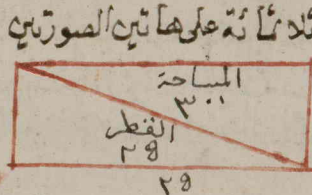 ثلاثمائة على هاتين الصورتين
المساحة
٣٠٠
القطر